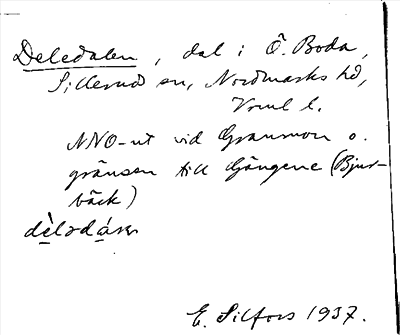 Deledalen, dal i Ö. Boda,
Sillerud sn, Nordmarks hd,
Vrml l.
NNO-ut vid Granmon o.
gränsen till Gängene (Bjur-
bäck)
E. Silfors 1937.